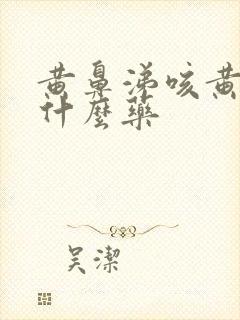 黄鼻涕咳黄
什麼藥
吴潔